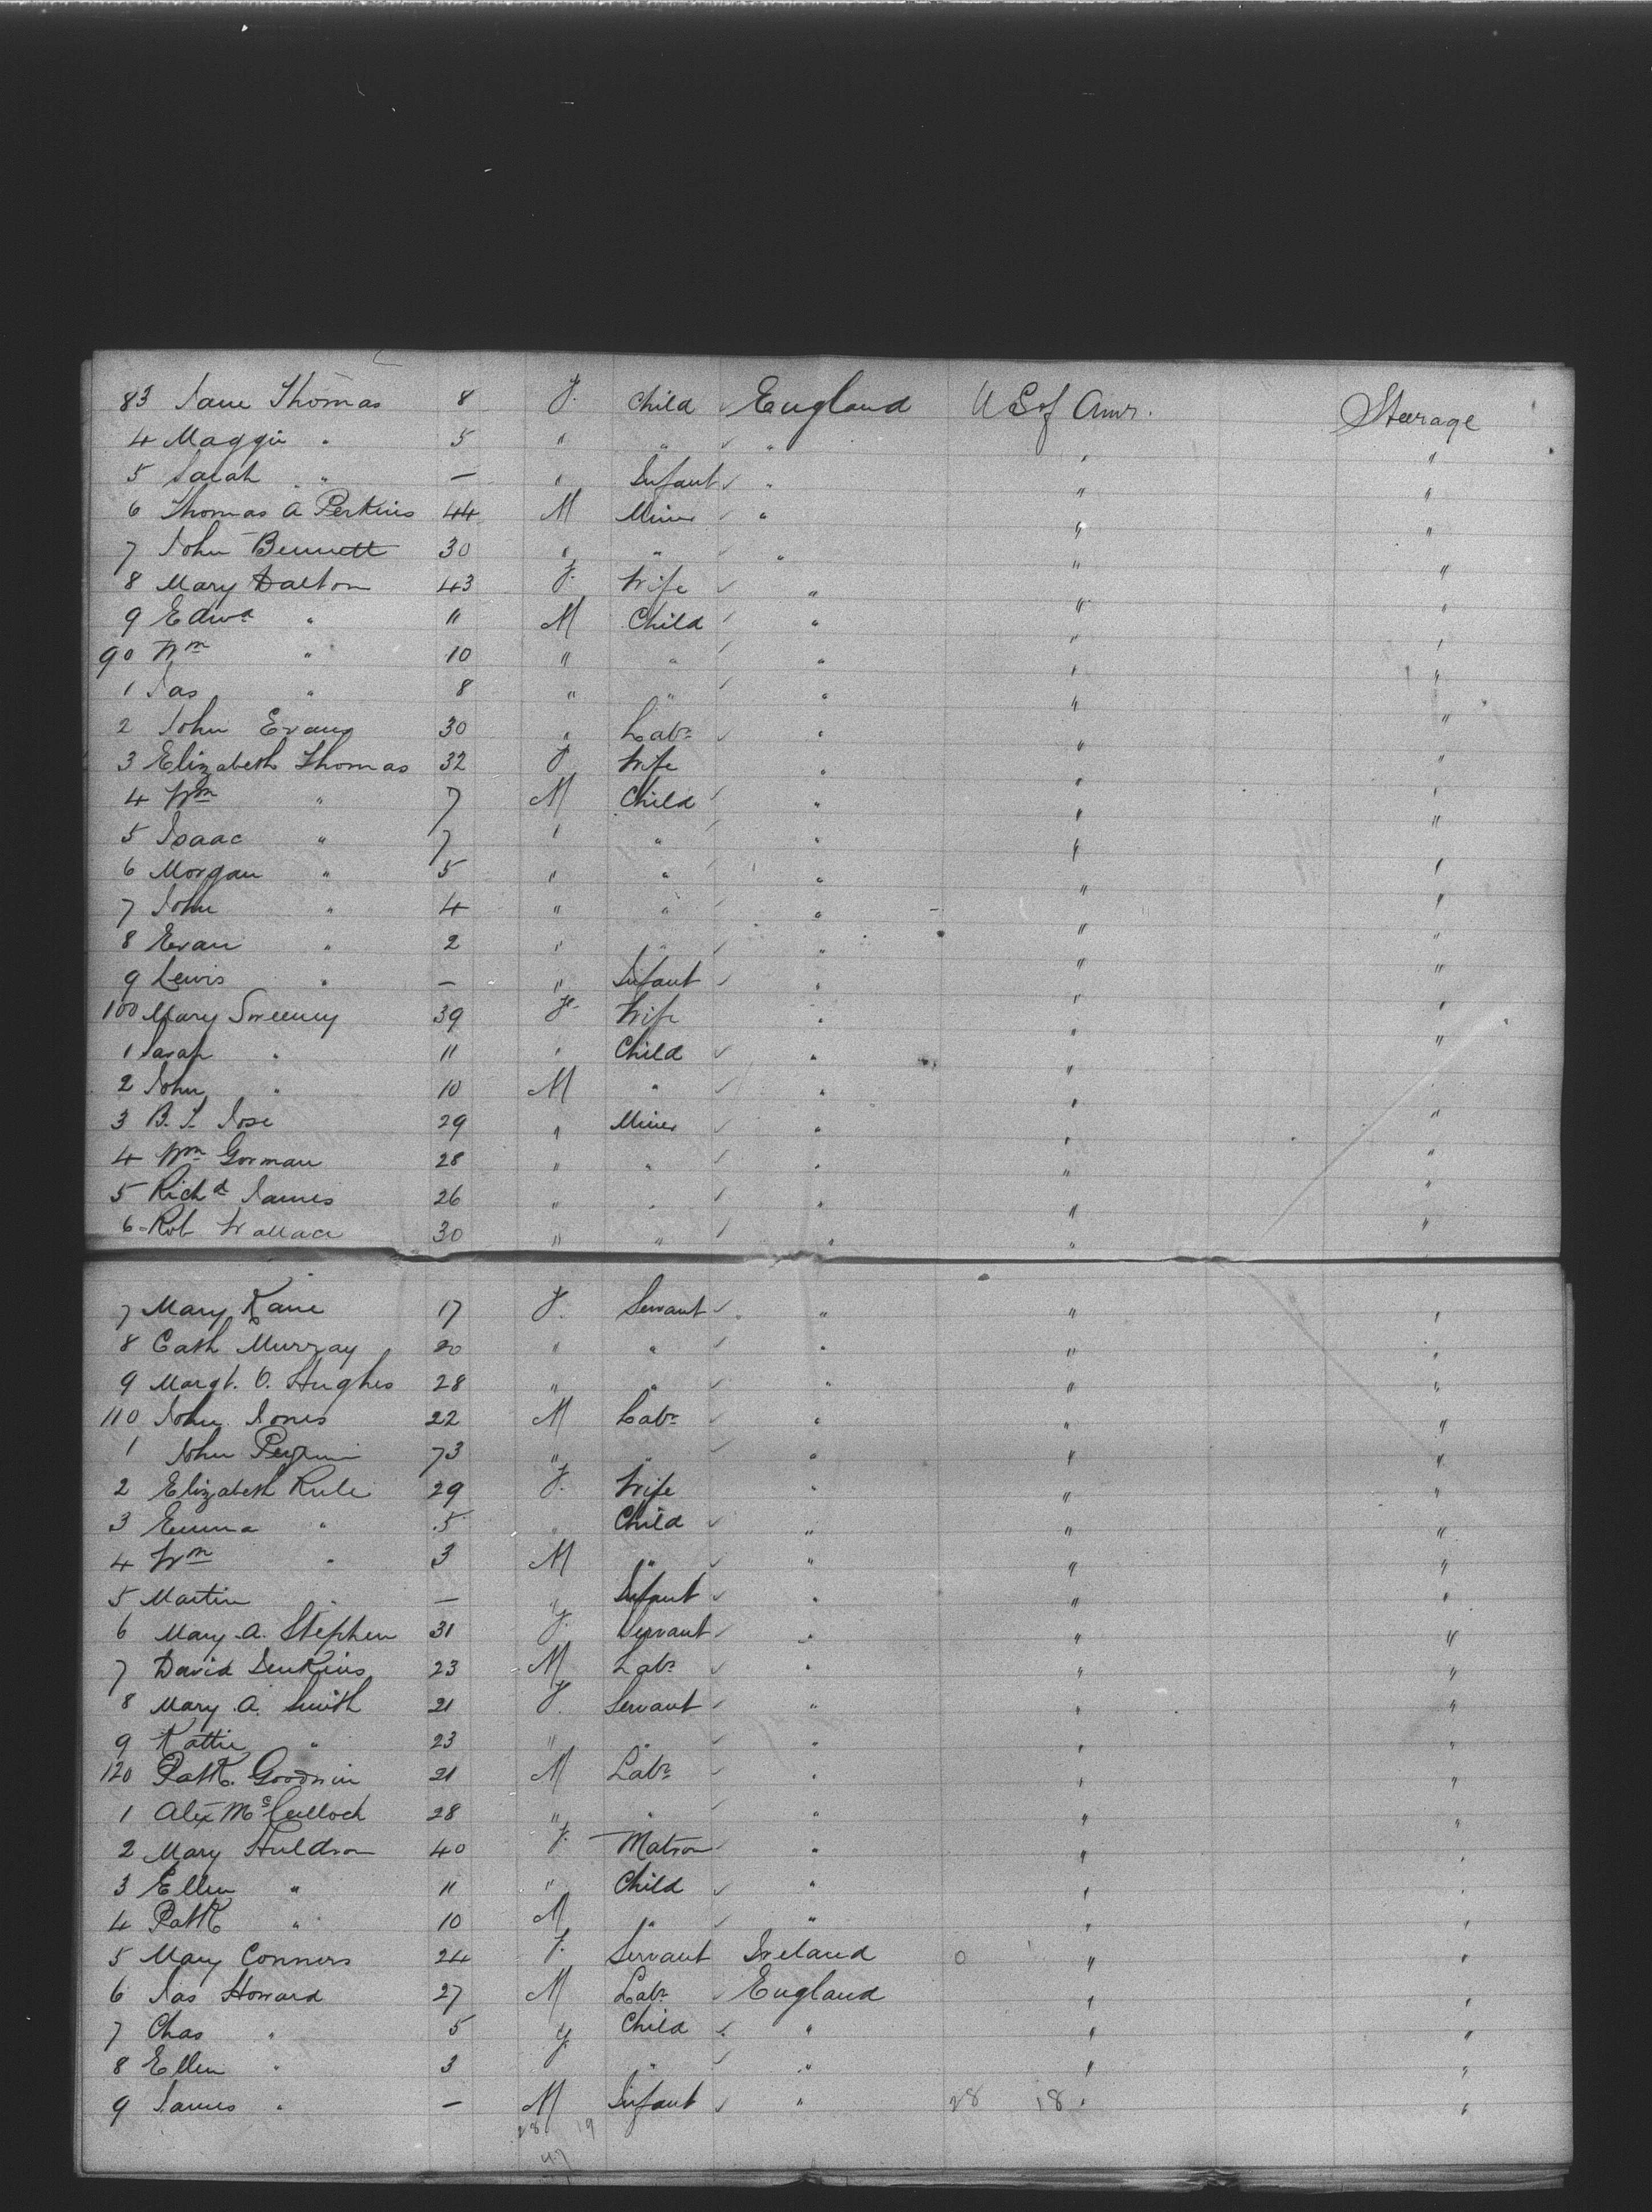 83 Jane Thomas 8 F. Child England U S of Amr. Steerage
4 Maggie " 5 " " " " "
5 Sarah " — " Infant " " "
6 Thomas A Perkins 44 M Miner " " "
7 John Bennett 30 " " " " "
8 Mary Dalton 43 F. Wife " " "
9 Edwd " 11 M Child " " "
90 Wm " 10 " " " " "
1 Jas " 8 " " " " "
2 John Evans 30 " Labr " " "
3 Elizabeth Thomas 32 F Wife " " "
4 Wm " 7 M Child " " "
5 Isaac " 7 " " " " "
6 Morgan " 5 " " " " "
7 John " 4 " " " " "
8 Evan " 2 " " " " "
9 Lewis " — " Infant " " "
100 Mary Sweeney 39 F. Wife " " "
1 Sarah " 11 " Child " " "
2 John " 10 M " " " "
3 B. T. Jose 29 " Miner " " "
4 Wm Gorman 28 " " " " "
5 Richd James 26 " " " " "
6 Rob Wallace 30 " " " " "
7 Mary Kane 17 F. Servant " " "
8 Cath Murray 20 " " " " "
9 Margt. O. Hughes 28 " " " " "
110 John Jones 22 M Labr " " "
1 John 73 " " " " "
2 Elizabeth Rule 29 F. Wife " " "
3 Emma " 5 " Child " " "
4 Wm " 3 M " " " "
5 Martin " — " Infant " " "
6 Mary A. Stephen 31 F. Servant " " "
7 David Jenkins 23 M Labr " " "
8 Mary A. Smith 21 F. Servant " " "
9 Kattie " 23 " " " " "
120 Patk. Goodwin 21 M Labr " " "
1 Alex McCulloch 28 " " " " "
2 Mary 40 F. Matron " " "
3 Ellen " 11 " Child " " "
4 Patk " 10 M " " " "
5 Mary Connors 24 F. Servant Ireland 0 " "
6 Jas Howard 27 M Labr England " "
7 Chas " 5 Child " " "
8 Ellen " 3 " " " "
9 James " — M Infant " 28 18 " "
28 19
47